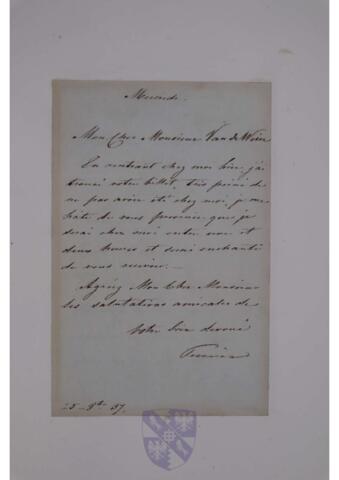 Mercredi.
Mon Cher Monsieur Van de Weyer
En rentrant chez moi hier j'ai
trouvé votre billet, très peiné de
ne pas avoir été chez moi, je me
hâte de vous prévenir que je
serai chez moi entre une et
deux heures et serai enchanté
de vous recevoir. —
Agréez Mon Cher Monsieur
les salutations amicales de
votre bien dévoué
25 - 57.